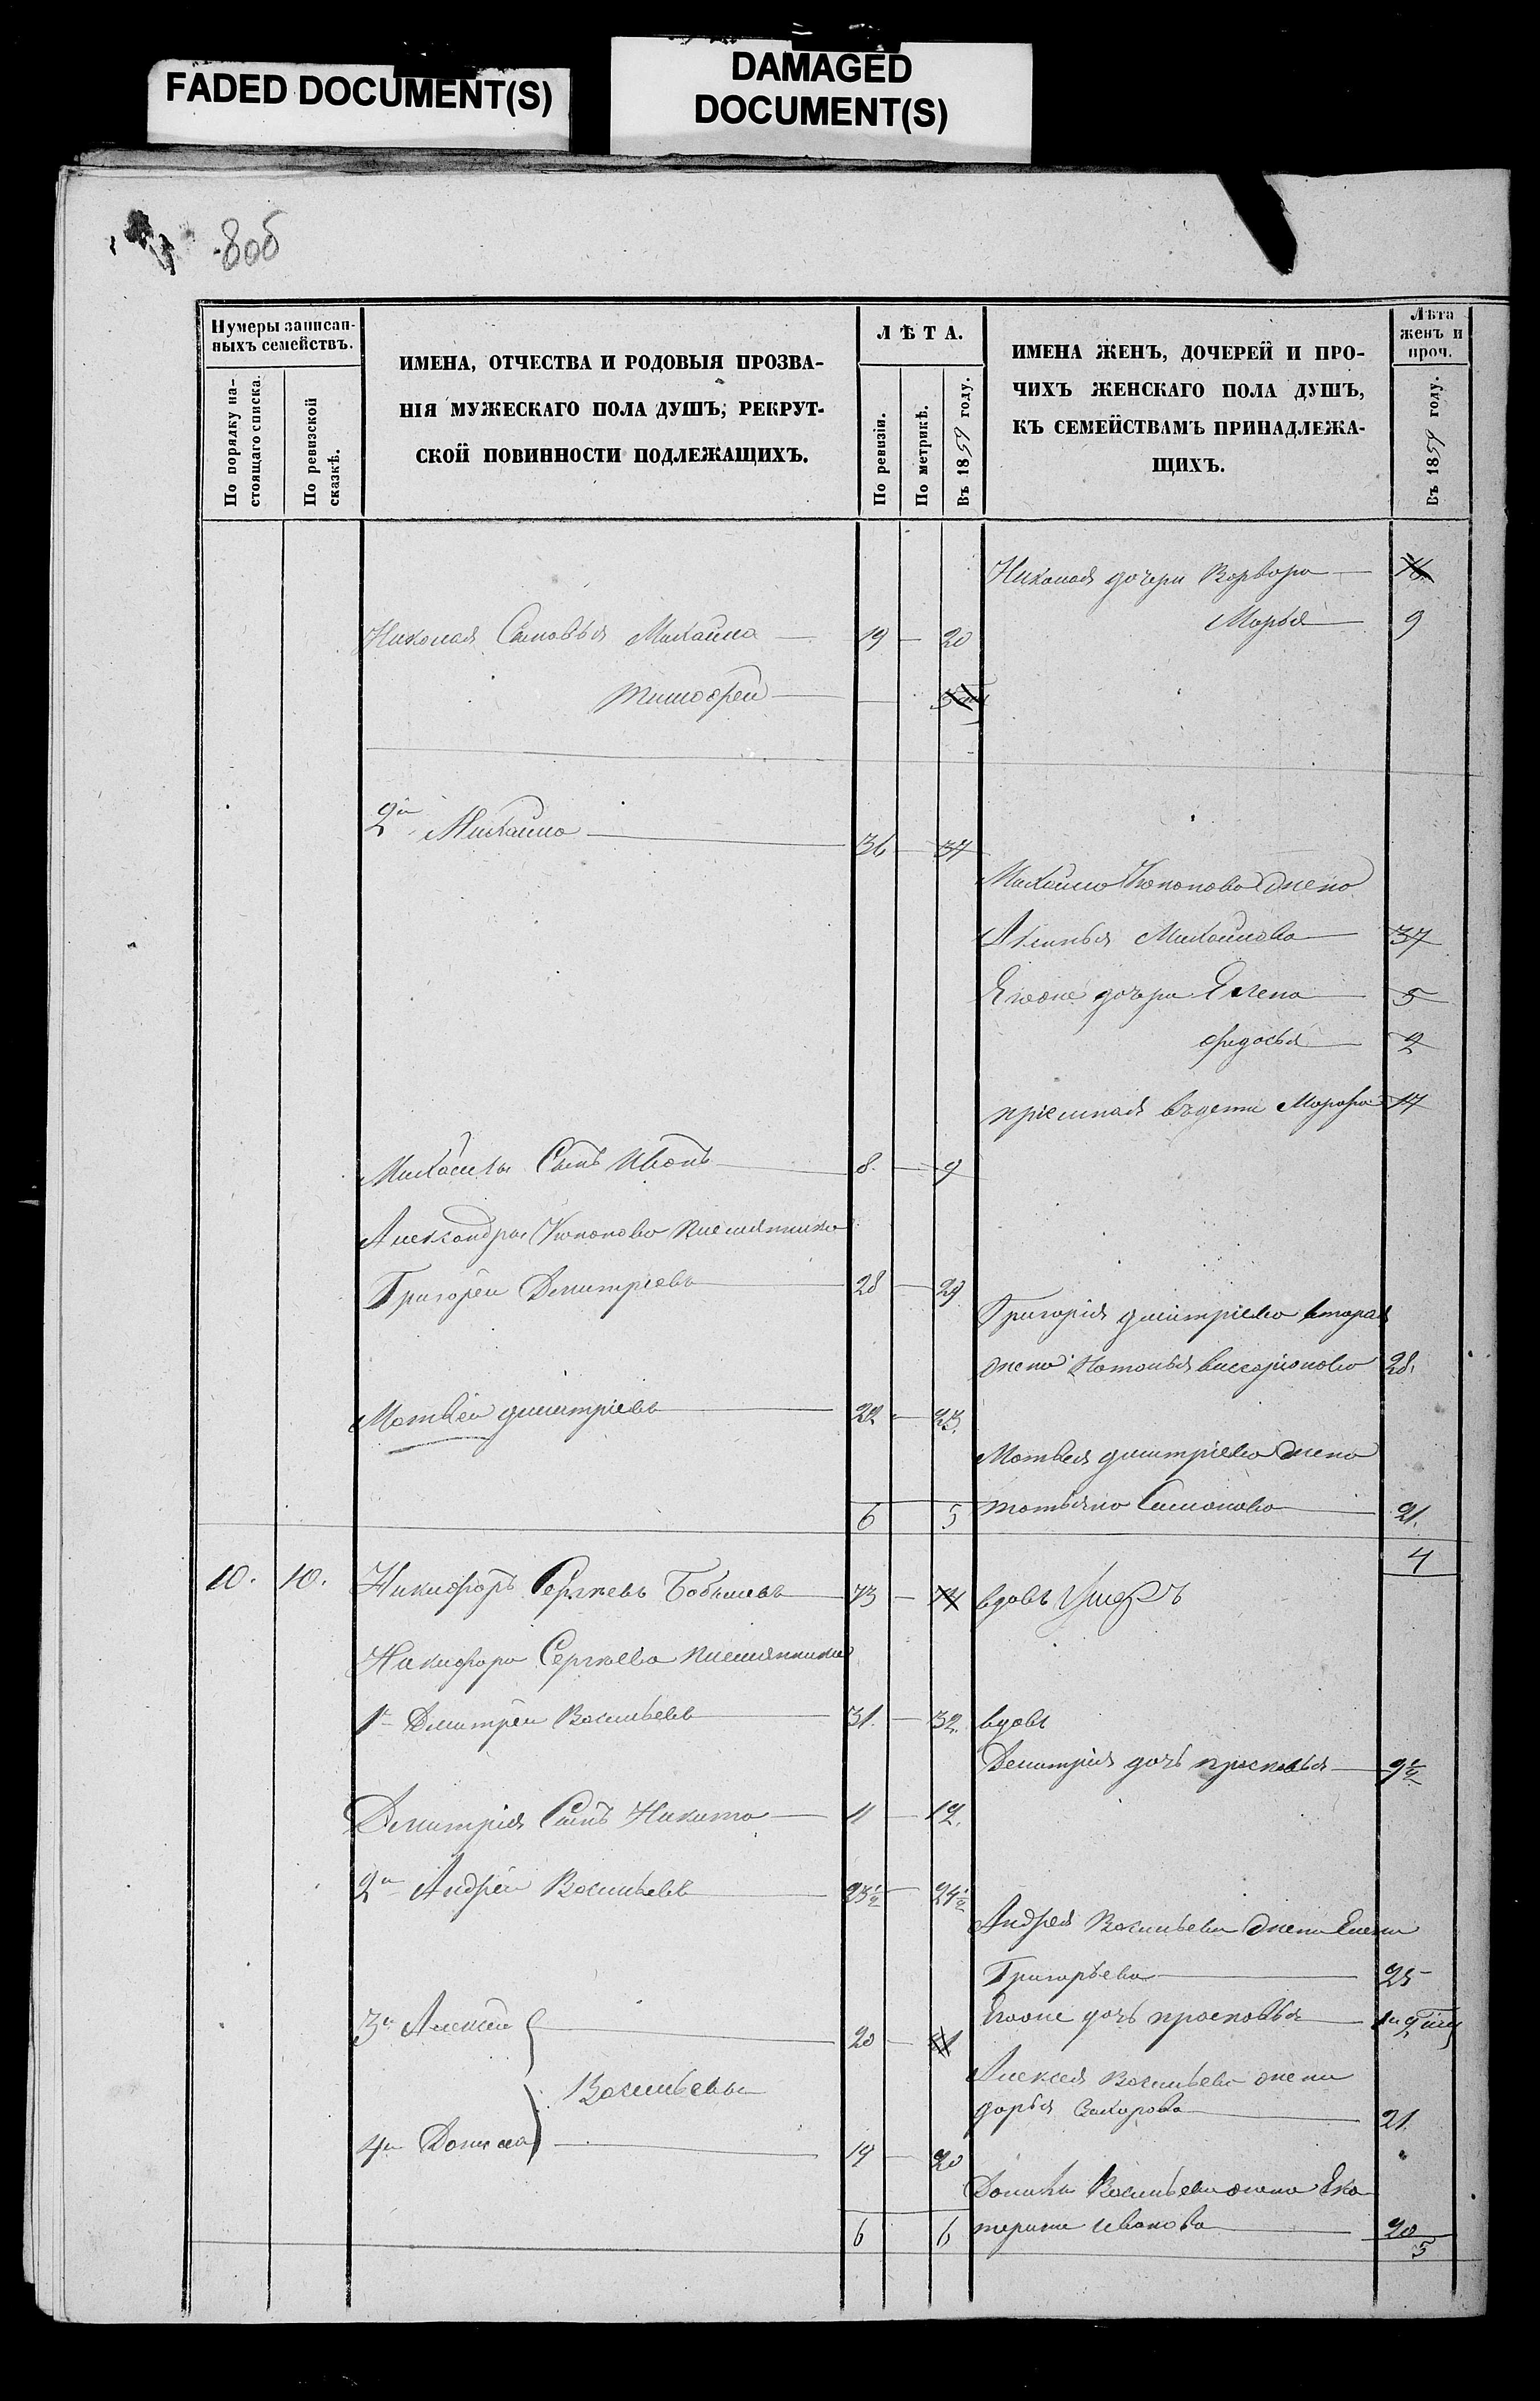 FADED DOCUMENT(S)
DAMAGED
DOCUMENT(S)
8об
Нумеры записан-
ныхъ семействъ.
По порядку на-
стоящаго списка.
По ревизской
сказкѣ.
ИМЕНА, ОТЧЕСТВА И РОДОВЫЯ ПРОЗВА-
НІЯ МУЖЕСКАГО ПОЛА ДУШЪ, РЕКРУТ-
СКОЙ ПОВИННОСТИ ПОДЛЕЖАЩИХЪ.
ЛѢТА.
По ревизіи.
По метрикѣ.
Въ 1859 году.
ИМЕНА ЖЕНЪ, ДОЧЕРЕЙ И ПРО-
ЧИХЪ ЖЕНСКАГО ПОЛА ДУШЪ,
КЪ СЕМЕЙСТВАМЪ ПРИНАДЛЕЖА-
ЩИХЪ.
Лѣта
женъ и
проч.
Въ 1859 году.
Николая дочери Варвара — 16
Марья — 9
Николая Сыновья Михайла — 19 — 20
тимофей —
2й Михайла — 36 — 37
Михайлы жена
Михайлова — 37
Егоже дочери Елена — 5
федосья — 2
пріемная 17
Михайлы Сынъ Иванъ — 8. — 9
Александры племянники
Григорей Дмитріевъ — 28 — 29
Григорія дмитріева вторая
жена Наталья висаріонова 28.
Матвей дмитріевъ — 22 — 23.
Матвея дмитріева жена
татьяна Симонова — 21.
6 5
4
10. 10. Никифоръ Сергѣевъ — 73 — 74 вдовъ
Никифора Сергѣева племянники
1й Дмитрей Васильевъ — 31. — 32. вдовъ
Дмитрія дочь прасковья — 9½
Дмитрія Сынъ Никита — 11 — 12.
2й Андрей Васильевъ — 23½ — 24½
Андрея Васильева жена Елена
Григорьева — 25
Егоже дочь прасковья —
3й Алексей — 20 — 21
Васильевы
Алексея Васильева жена
дарья Захарова — 21.
4й Данила — 19 — 20
Данилы Васильева жена Ека
терина иванова — 20
6 6
5